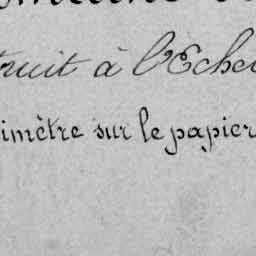 truit à l'Echel
imètre sur le papier